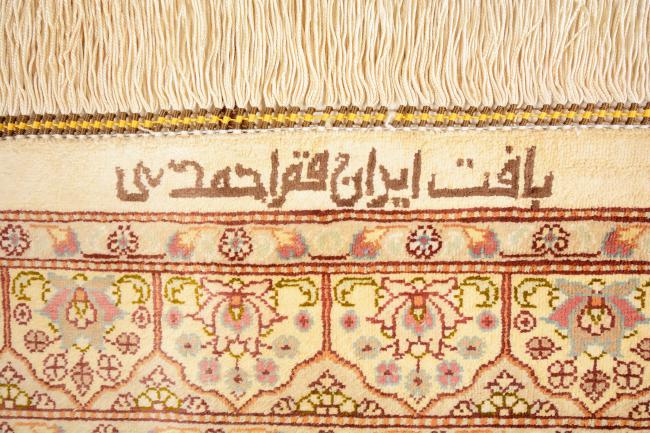 بافت ایران قم احمدی